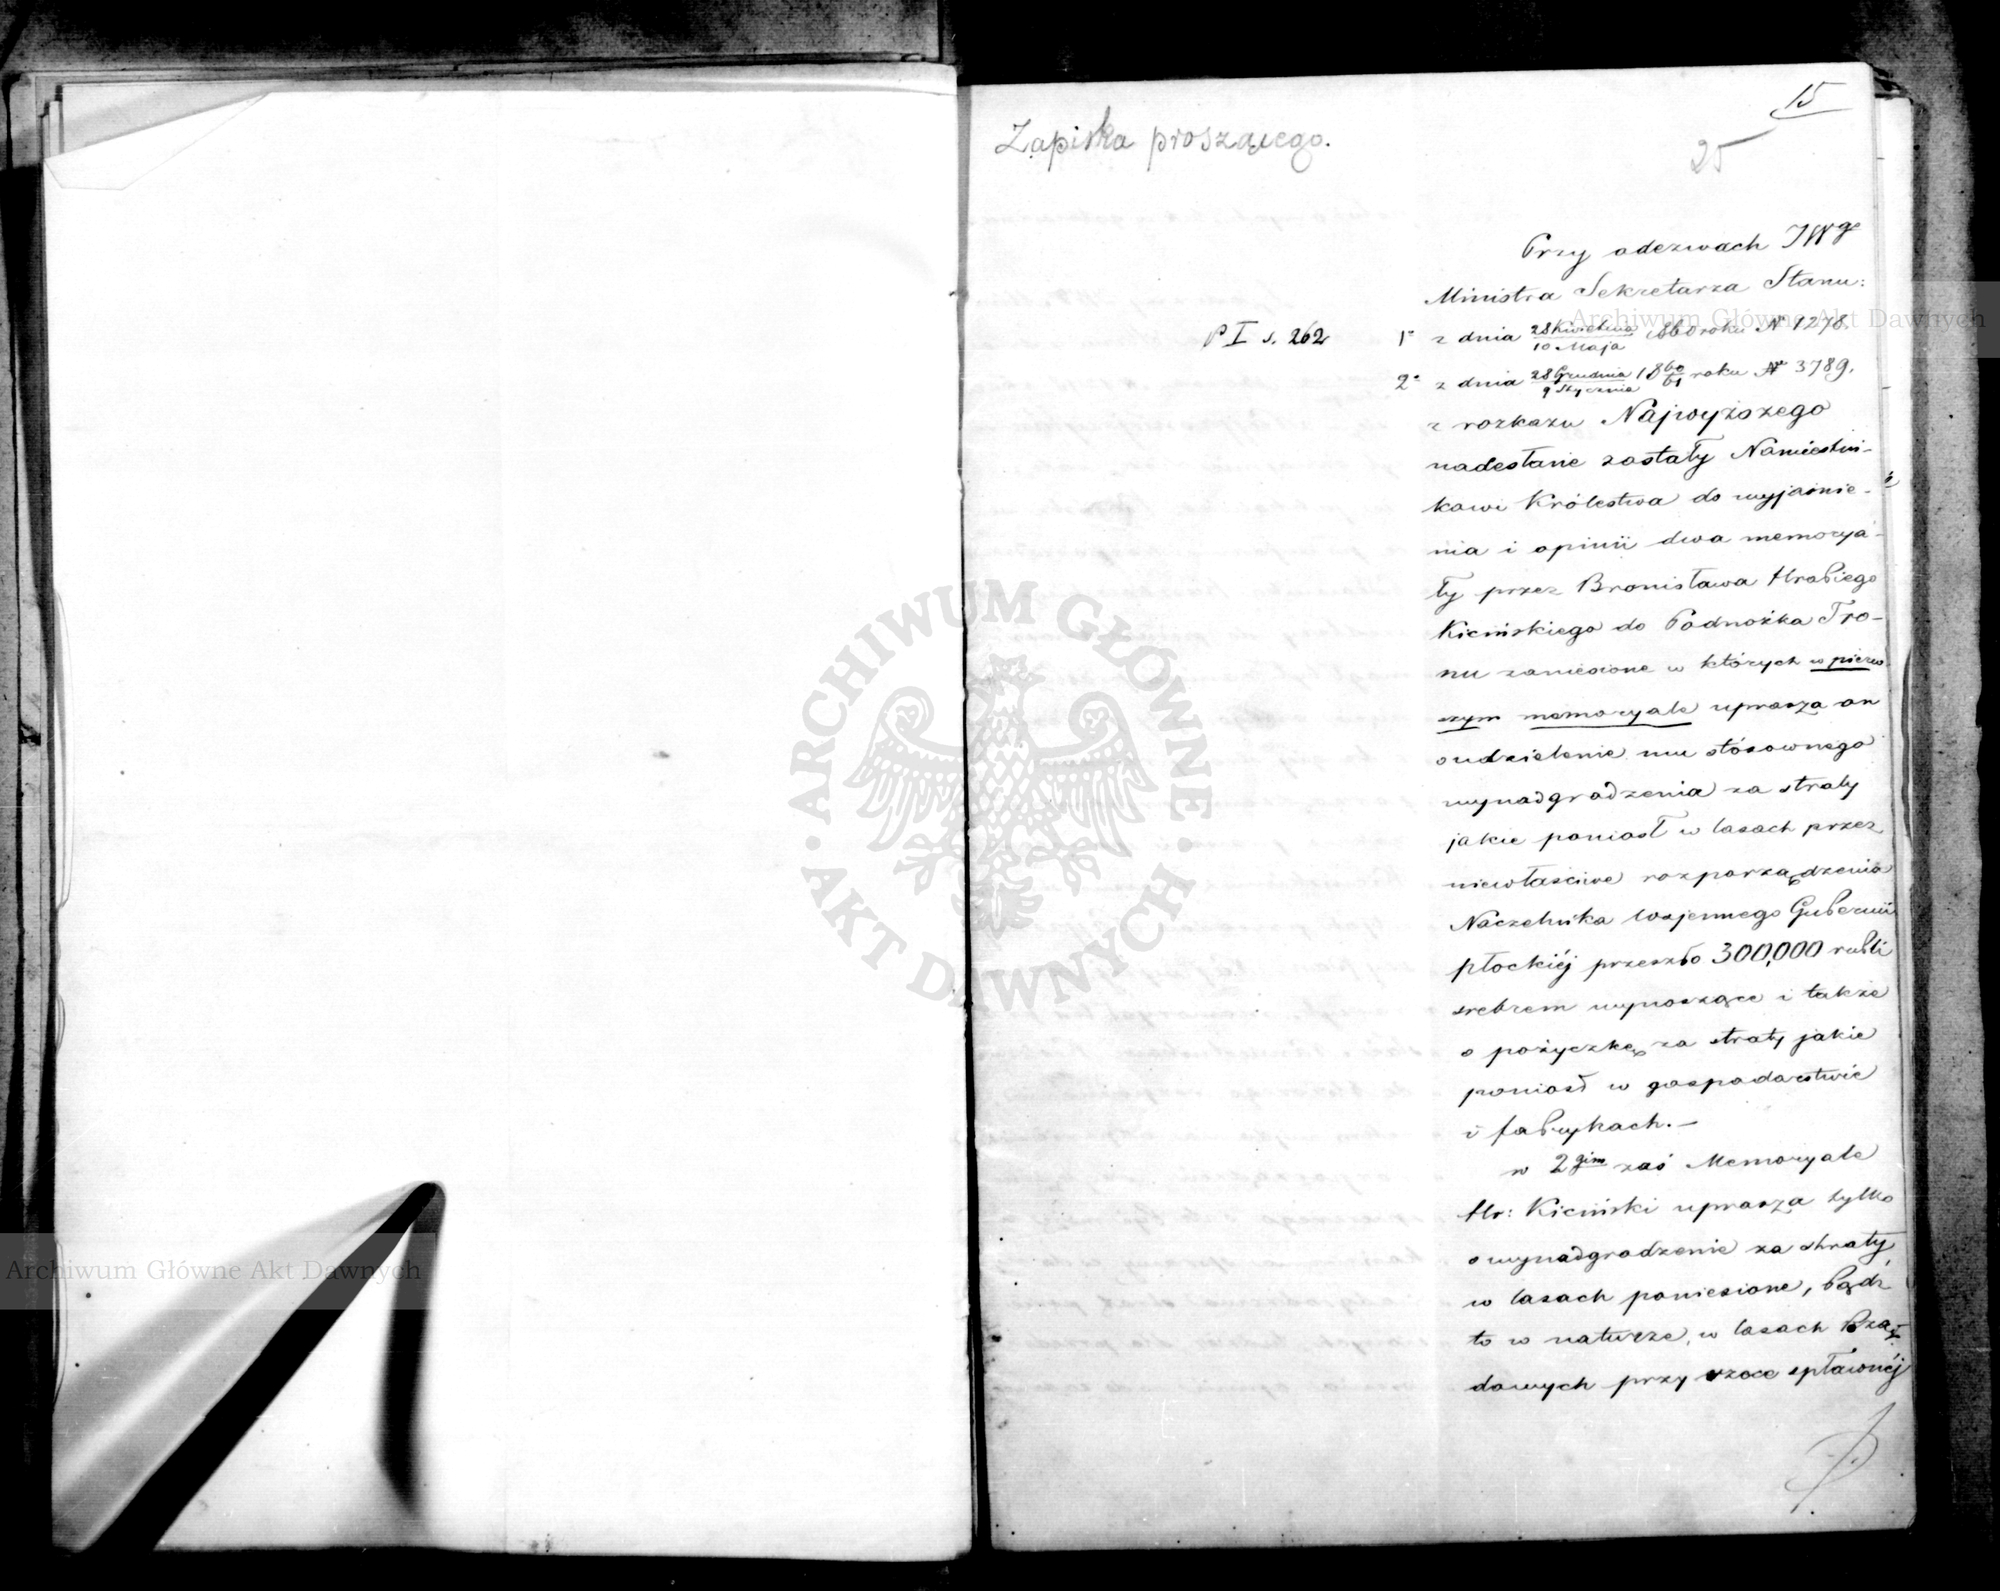 15
25
Zapiska proszącego.
Przy odezwach JWgo
Ministra Sekretarza Stanu:
P I s. 262
1° z dnia 28 Kwietnia / 10 Maja 1860 roku N 1278.
2° z dnia 28 Grudnia / 9 Stycznia 1860/61 roku N 3789.
z rozkazu Najwyższego
nadesłane zostały Namiestni-
kowi Królestwa do wyjaśnie-
nia i opinii dwa memorya-
ły przez Bronisława Hrabiego
Kicińskiego do Podnóżka Tro-
nu zaniesione w których w pierw-
szym memoryale uprasza on
o udzielenie mu stósownego
wynadgrodzenia za straty
jakie poniosł w lasach przez
niewłaściwe rozporządzenia
Naczelnika Wojennego Gubernii
płockiéj przeszło 300,000 rubli
srebrem wynoszące i także
o pożyczkę za straty jakie
poniosł w gospodarstwie
i fabrykach. —
w 2gim zaś Memoryale
Hr: Kiciński uprasza tylko
o wynadgrodzenie za straty
w lasach poniesione, bądź
to w naturze, w lasach Rzą-
dowych przy rzece spławnéj
ARCHIWUM GŁÓWNE
AKT DAWNYCH
Archiwum Główne Akt Dawnych
Archiwum Główne Akt Dawnych